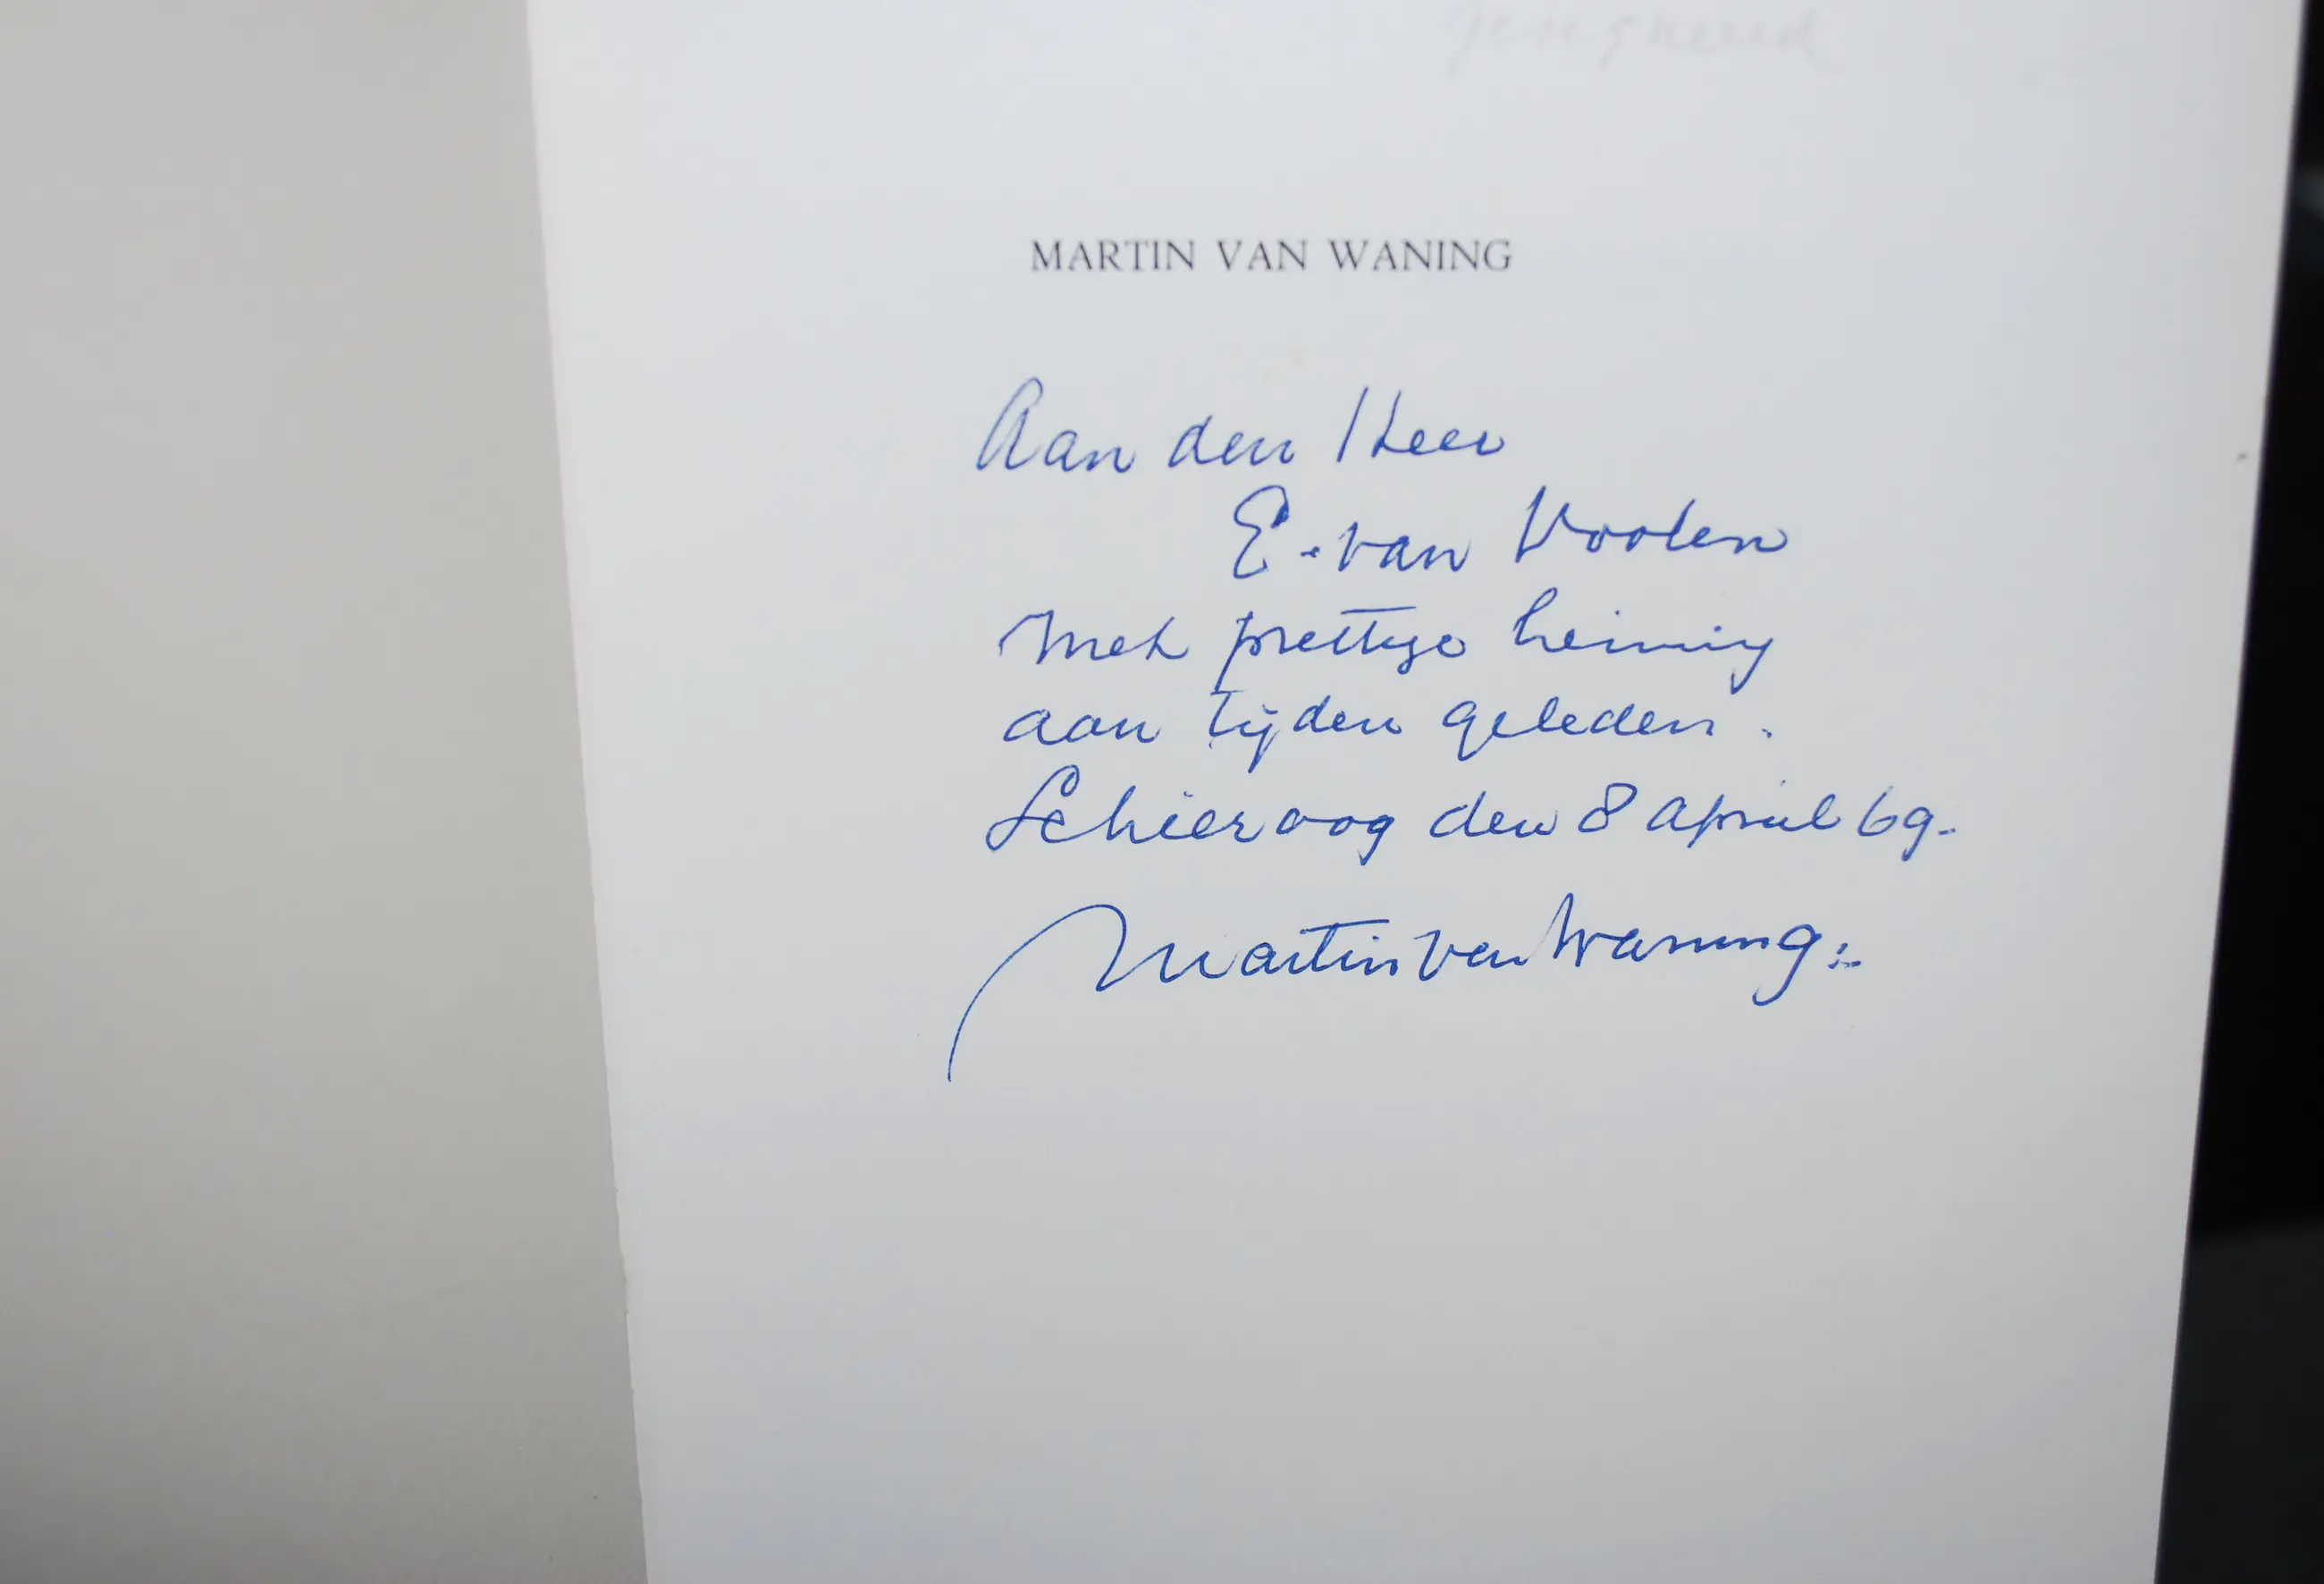 gesigneerd
MARTIN VAN WANING
Aan den Heer
E. van Voolen
Met prettige
aan tijden geleden.
Schieroog den 8 april 69.
Martin van Waning.